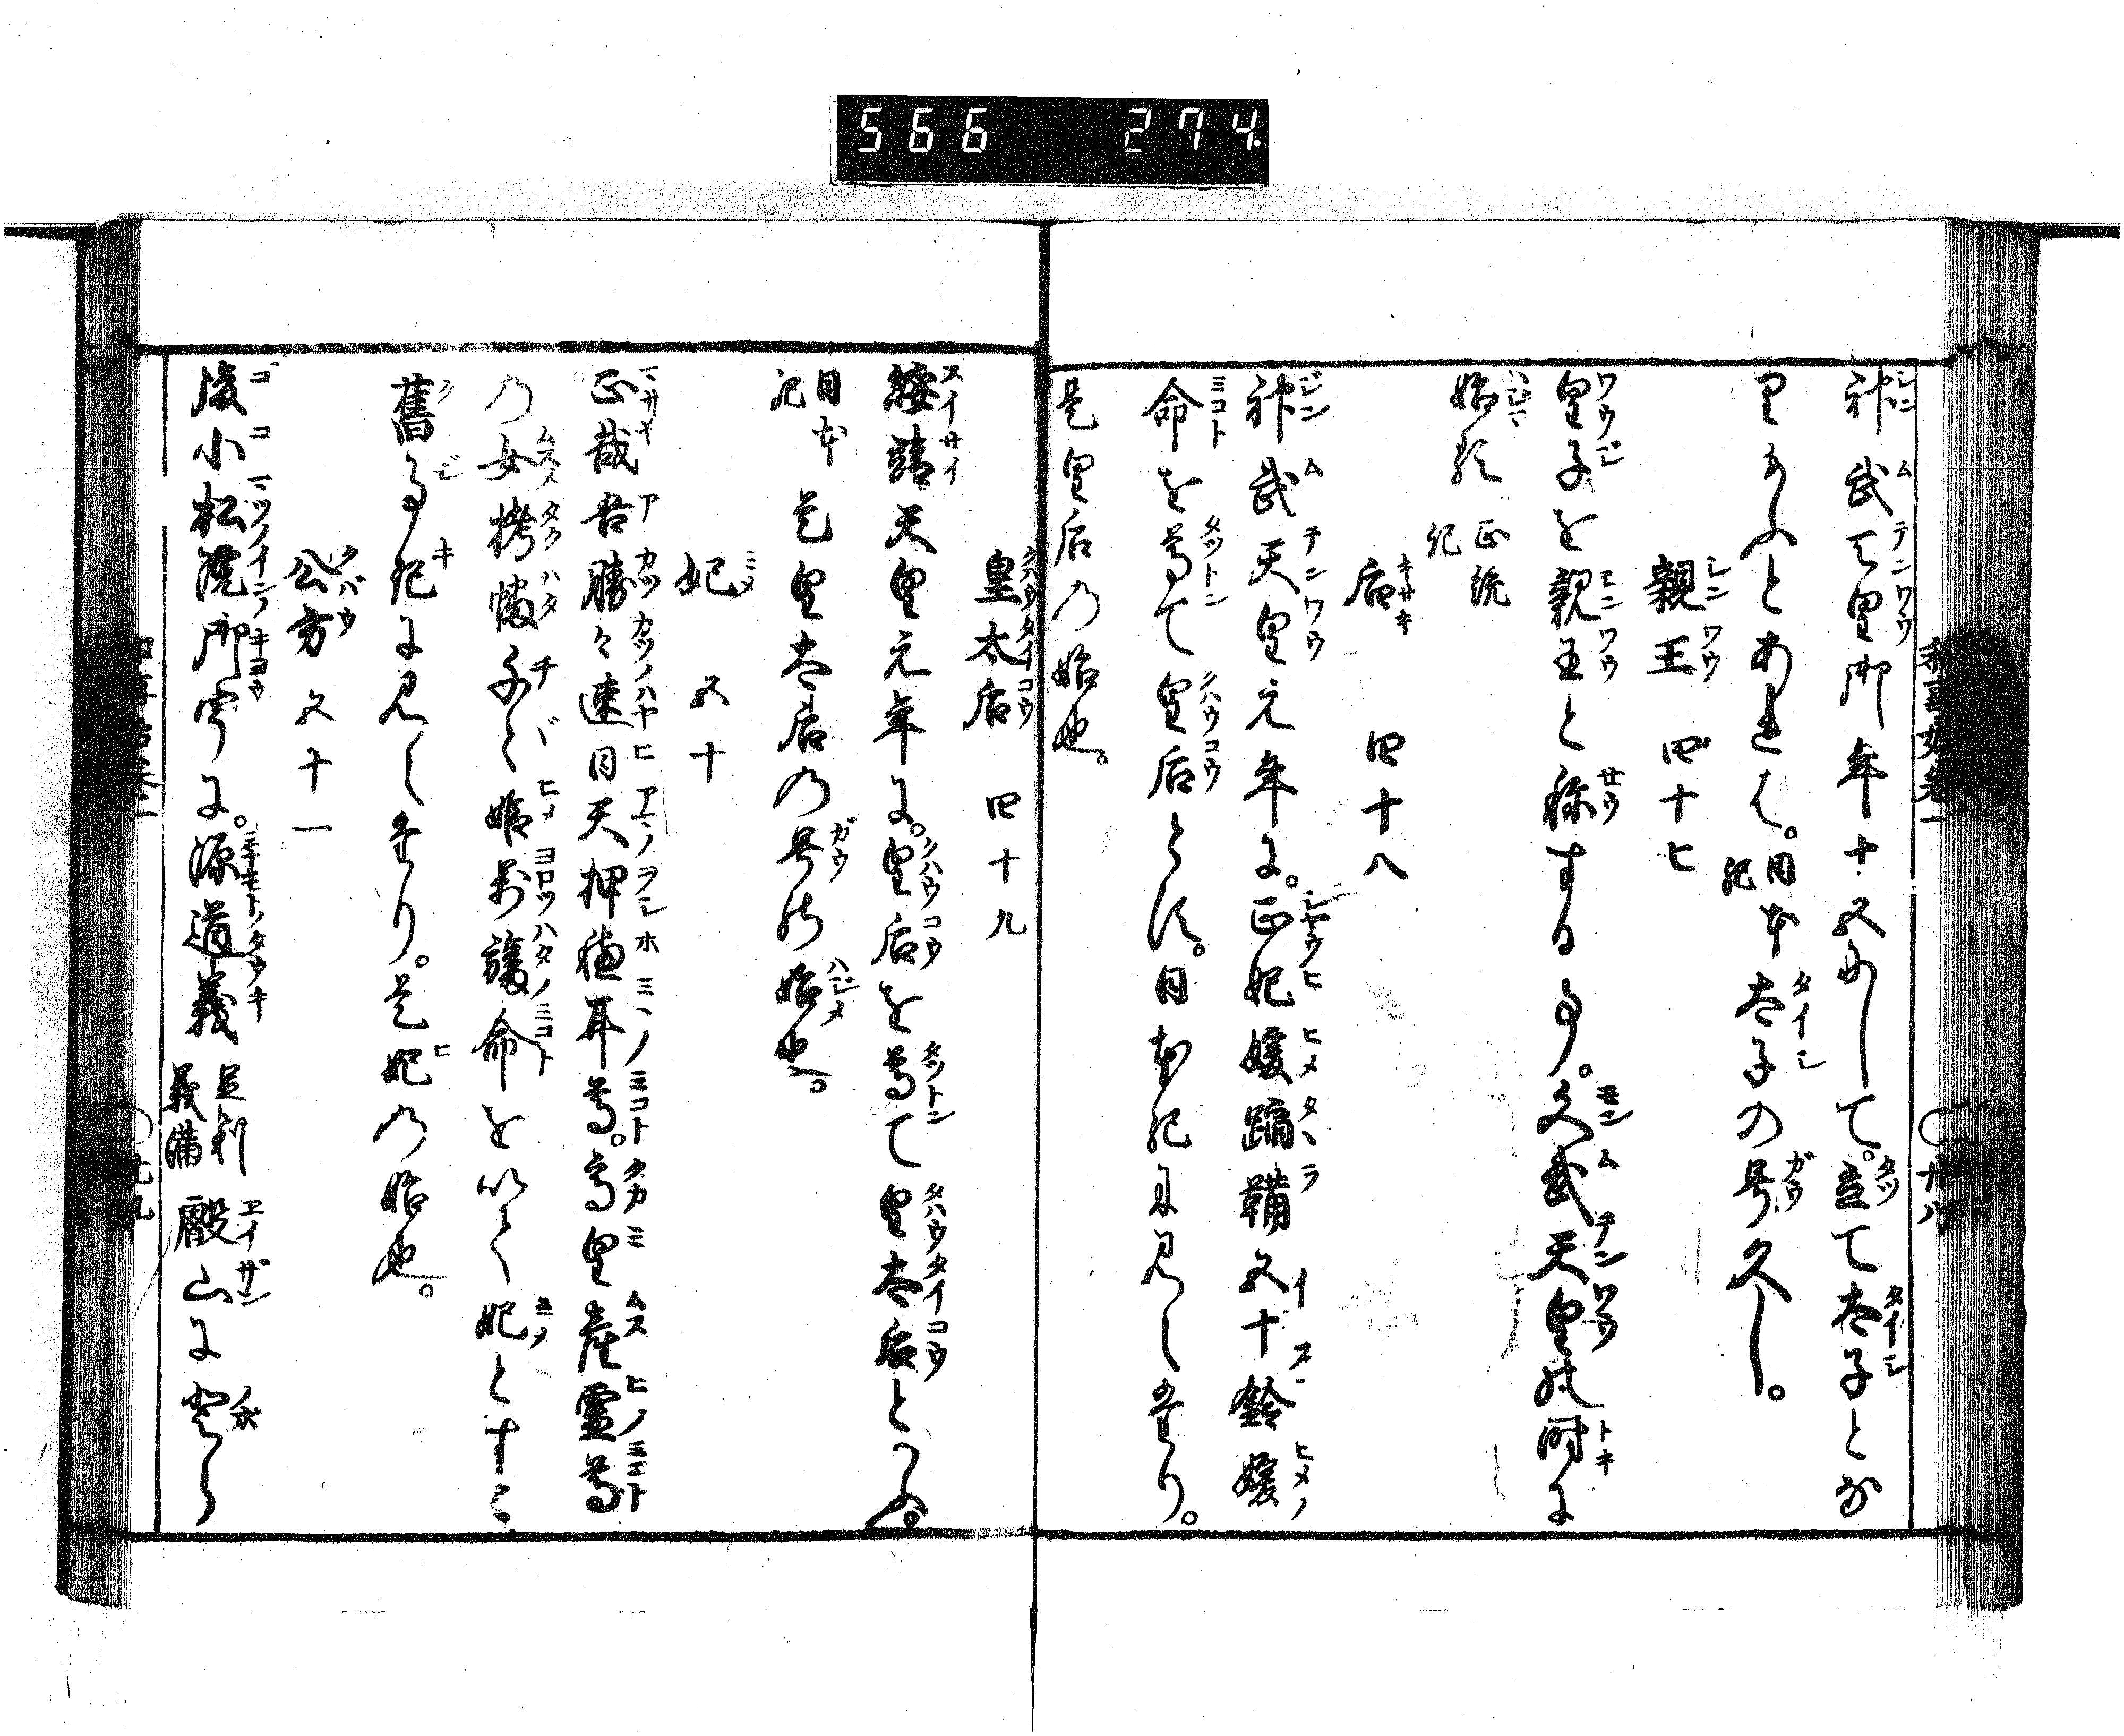 566 274
神武天皇御年十五にして。立て太子とな
り給ふとあれば。日本紀太子の号久し。
親王 四十七
皇子を親王と称する事。文武天皇の時に
始れり 正統紀
后 四十八
神武天皇元年に。正妃媛蹈鞴五十鈴媛
命を尊て皇后とす。日本紀に見へたり。
是皇后の始也。
皇太后 四十九
綏靖天皇元年に。皇后を尊て皇太后といふ。
日本紀 是皇太后の号の始也。
妃 五十
正哉吾勝々速日天押穂耳尊。高皇産霊尊
の女栲幡千々姫万幡命を以て妃とすと
舊事紀に見へたり。是妃の始也。
公方 五十一
後小松院御宇に。源道義 足利義満 叡山に登ら